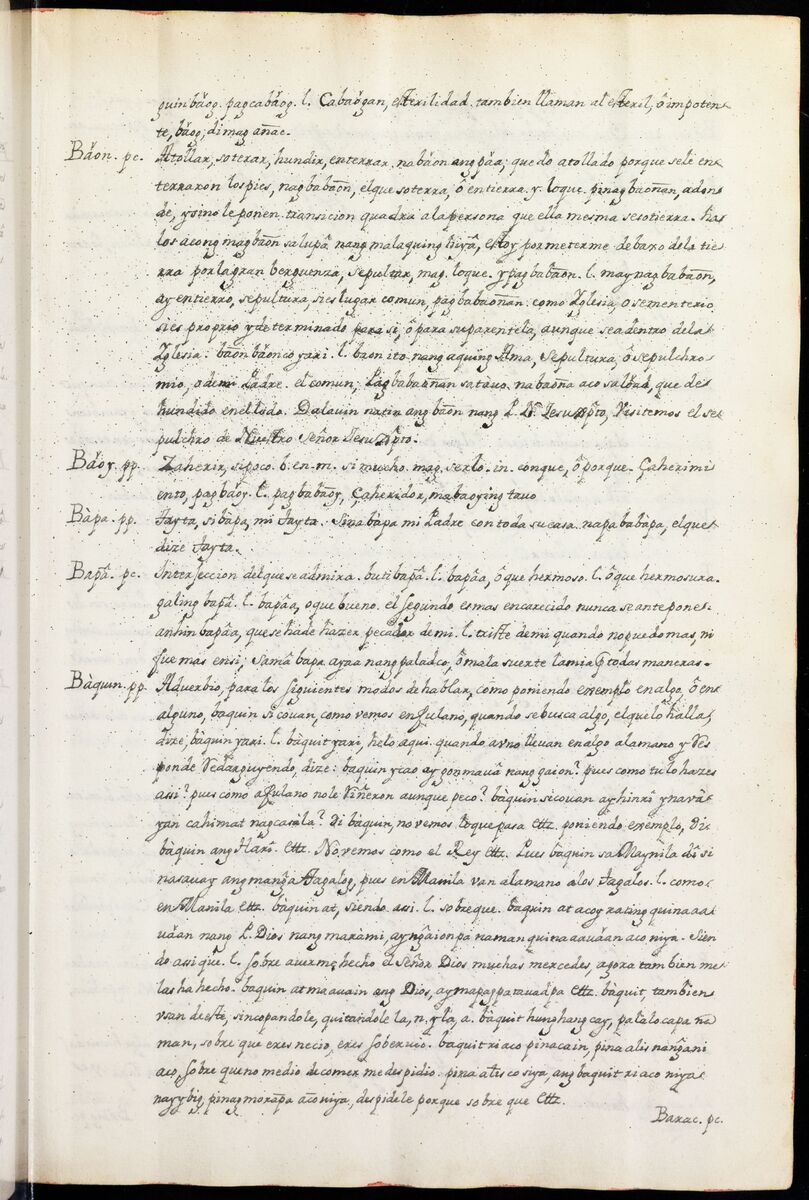 guinbáog. pagcabáog. l. Cabaógan, esterilidad. tambien llaman al esteril, ô impoten-
te, báog, di mag anac.
Báon. pc. Atollar, soterar, hundir, enterrar. nabáon ang páa, quedo atollado porque sele en
terraron los pies, nagbabaon, el que soterra, ô entierra. y. loque. pinagbaonan, adon
de, y sino le ponen transicion quadra ala persona que ella mesma sesotierra. has
los acong magbaon sa lupâ nang malaquing hiyâ, estoy por meterme debaxo dela tie
rra por la gran berguenza, sepultar, mag. loque. ypagbabáon. l. may nagbabáon,
ay entierro, sepultura, si es lugar comun, pagbabaonan. como Yglesia, o sementerio
si es proprio y determinado para si, ô para su parentela, aunque sea dentro dela
Yglesia: baon báonco yari. l. baon ito nang aquing Ama, Sepultura, ô sepulchro
mio, o demi Padre. el comun; Pagbabaonan sa tàuo. nabaona aco sa lórac, que de
hundido en el lodo. Dalauin natin ang baon nang P. N. Jesu Xpto, Visitemos el se
pulchro de Nuestro Señor Jesu Xpto.
Báoy. pp. Zaherir, si poco. b. en. m. si mucho. mag. serlo. in. conque, ô porque. Çaherimi
ento, pagbáoy. l. pagbabaoy, Çaheridor, mabaoying tavo
Bàpa. pp. Tayta, si bàpa, mi Tayta. Sinabàpa mi Padre con toda su casa. napabàpa, el que
dize Tayta.
Bapâ. pc. Interjeccion del que se admira. buti bapâ. l. bapâa, ô que hermoso. l. ô que hermosura.
galing bapâ. l. bapâa, o que bueno. el segundo es mas encarecido nunca se antepone.
anhin bapâa, que se ha de hazer pecador de mi. l. triste de mi quando no puedo mas, ni
fue mas ensi; Samâ bapa ayaa nang paladco, ô mala suerte la mia todas maneras.
Bàquin. pp. Aduerbio, para los siguientes modos de hablar, como poniendo exemplo en algo, ô en
alguno, bàquin si couan, como vemos en fulano, quando se busca algo, el que lo halla,
dize, bàquin yari. l. bàquit yari, helo aqui. quando avno lleuan en algo ala mano y Res
ponde Redarguyendo, dize: baquin ycao ay gongmauâ nang gaion? pues como tu lo hazes
assi? pues como a fulano no le riñeron aunque peco? bàquin si couan ay hinrî ynavà
yan cahimat nagcasàla? Di bàquin, no vemos loque pasa Etta. poniendo exemplo, Di
bàquin ang Hari. Etta. No vemos como el Rey Etta. Pues bàquin sa Maynila di si
nasauay ang manga Tagalog, pues en Manila van ala mano a los Tagalos. l. como
en Manila Etta. bàquin at, siendo assi. l. sobreque. baquin at acoy rating quinaaa
uáan nang P. Dios nang maràmi, ay ngaion pa naman quinaaauáan aco niya. Sien
do assi que. l. sobre auerme hecho el Señor Dios muchas mercedes, agora tambien me
las ha hecho. baquin at maauain ang Dios, ay mapagpatauad pa Etta. bàquit, tambien
vsan deste, sincopandole, quitandole la, n, y la, a. bàquit hunghang cay, palalo ca pa na
man, sobre que eres necio, eres soberuio. baquit ri aco pinacain, pina alis nangani
aco, sobre que no me dio de comer me despidio. pina alis co siya, ang baquit ri aco niya
nayybig, pinagmorapa aco niya, despidele porque sobre que Etta.
Barac. pc.